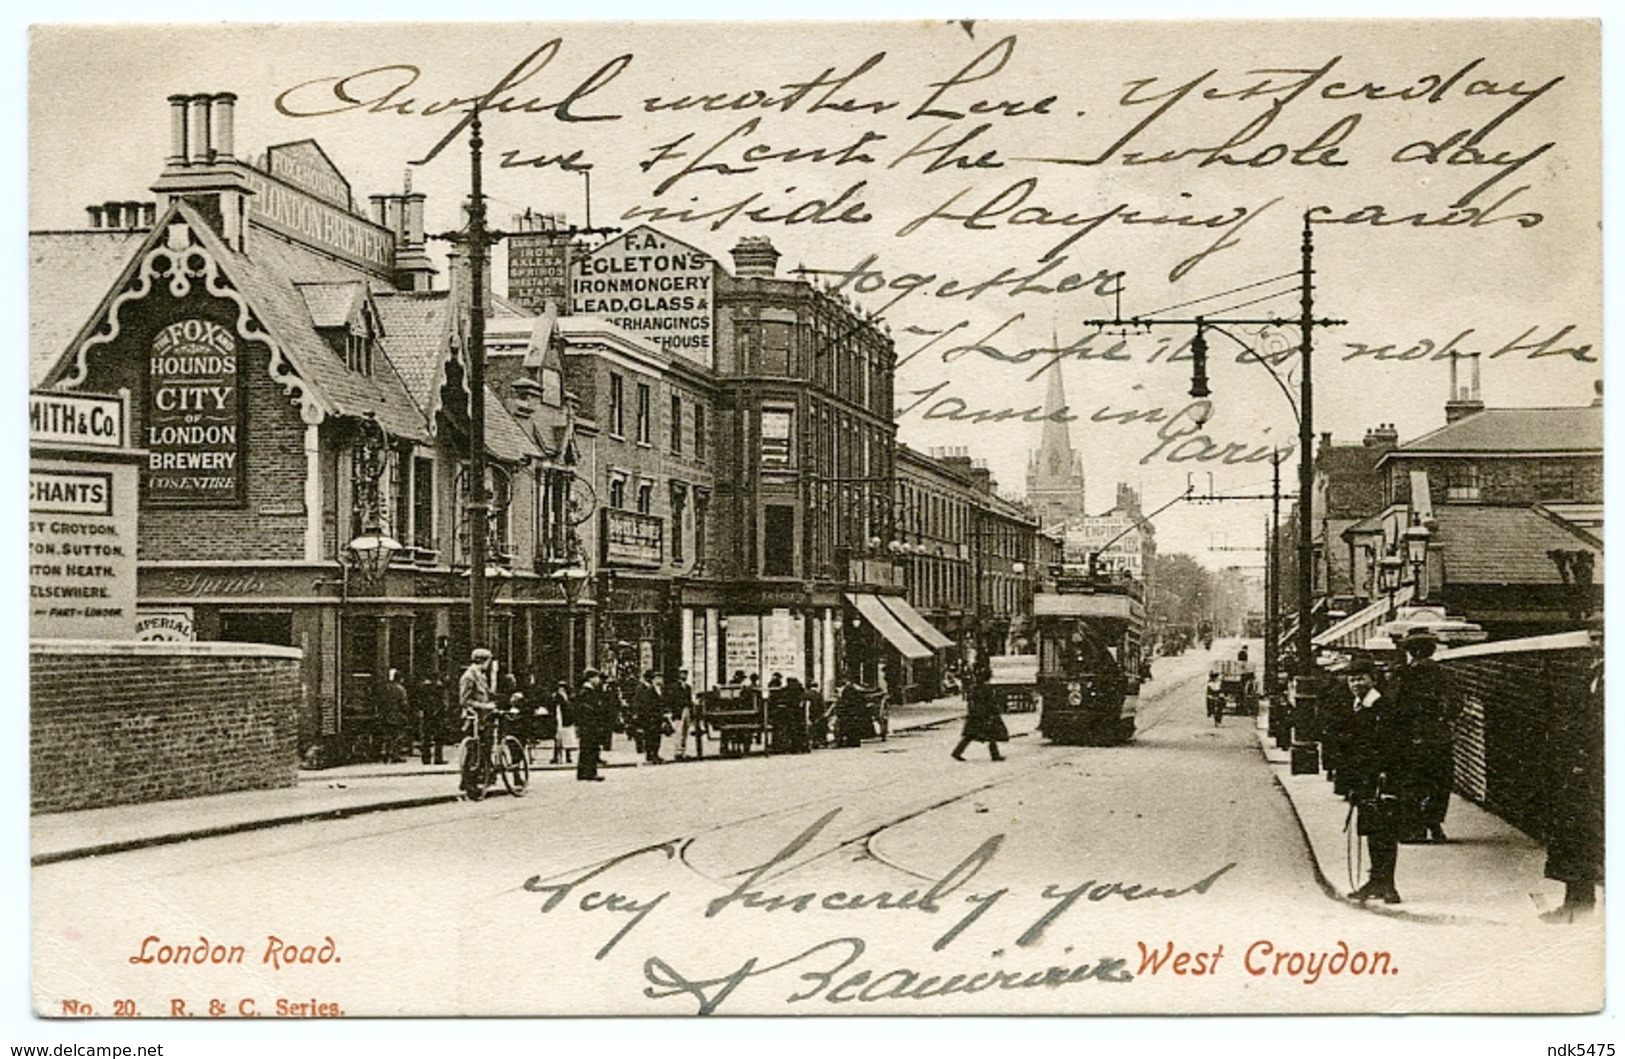 Awful weather here. Yesterday
we spent the whole day
inside playing cards
together
I hope it is not the
same in
Paris
FOX & HOUNDS
LONDON BREWERY
IRON
AXLES &
SPRINGS
LEAD
F.A.
EGLETON'S
IRONMONGERY
LEAD, GLASS &
PERHANGINGS
EHOUSE
THE FOX AND
HOUNDS
CITY
OF
LONDON
BREWERY
COS ENTIRE
MITH & Co.
CHANTS
ST CROYDON,
TON. SUTTON.
TON HEATH.
ELSEWHERE.
AND PART OF LONDON.
Spirits
IMPERIAL
EMPIRE
Very sincerely yours
London Road.
West Croydon.
No. 20. R. & C. Series.
www.delcampe.net
ndk5475